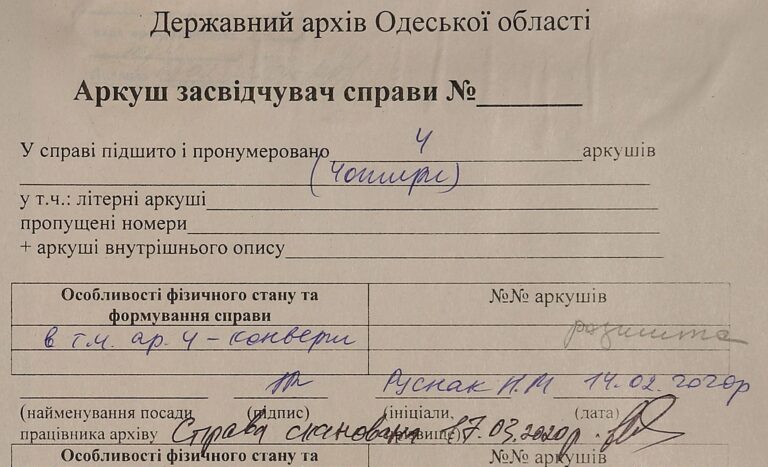 Державний архів Одеської області
Аркуш засвідчувач справи №
У справі підшито і пронумеровано 4 аркушів
(Чотири)
у т.ч.: літерні аркуші
пропущені номери
+ аркуші внутрішнього опису
Особливості фізичного стану та формування справи №№ аркушів
в т.ч. ар. 4 - конверт розшита
Руснак Н.М 14.02.2020р
(найменування посади працівника архіву (підпис) (ініціали, прізвище) (дата)
Справа сканована 17.03.2020р.
Особливості фізичного стану та №№ аркушів